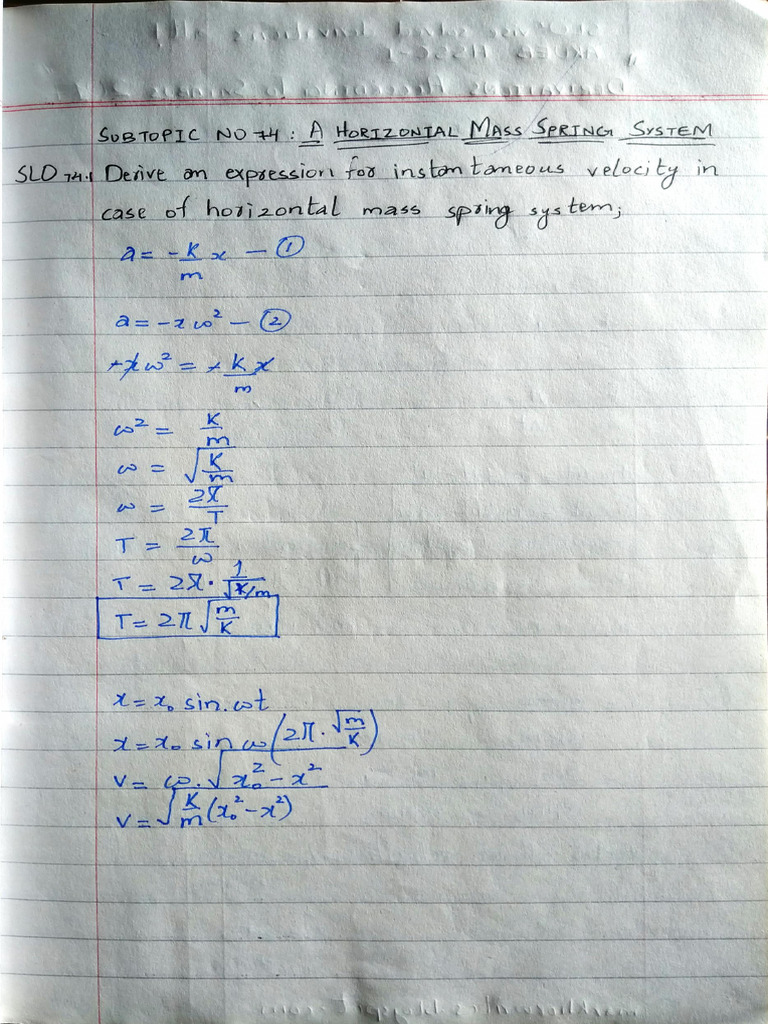 SUBTOPIC NO 74 : A HORIZONTAL MASS SPRING SYSTEM
SLO 74.1 Derive an expression for instantaneous velocity in
case of horizontal mass spring system;
a = -K/m x — ①
a = -xω² — ②
+xω² = +K/m x
ω² = K/m
ω = √(K/m)
ω = 2π/T
T = 2π/ω
T = 2π · 1/√(K/m)
T = 2π √(m/K)
x = x₀ sin.ωt
x = x₀ sin ω(2π · √(m/K))
v = ω.√(x₀² - x²)
v = √(K/m (x₀² - x²))